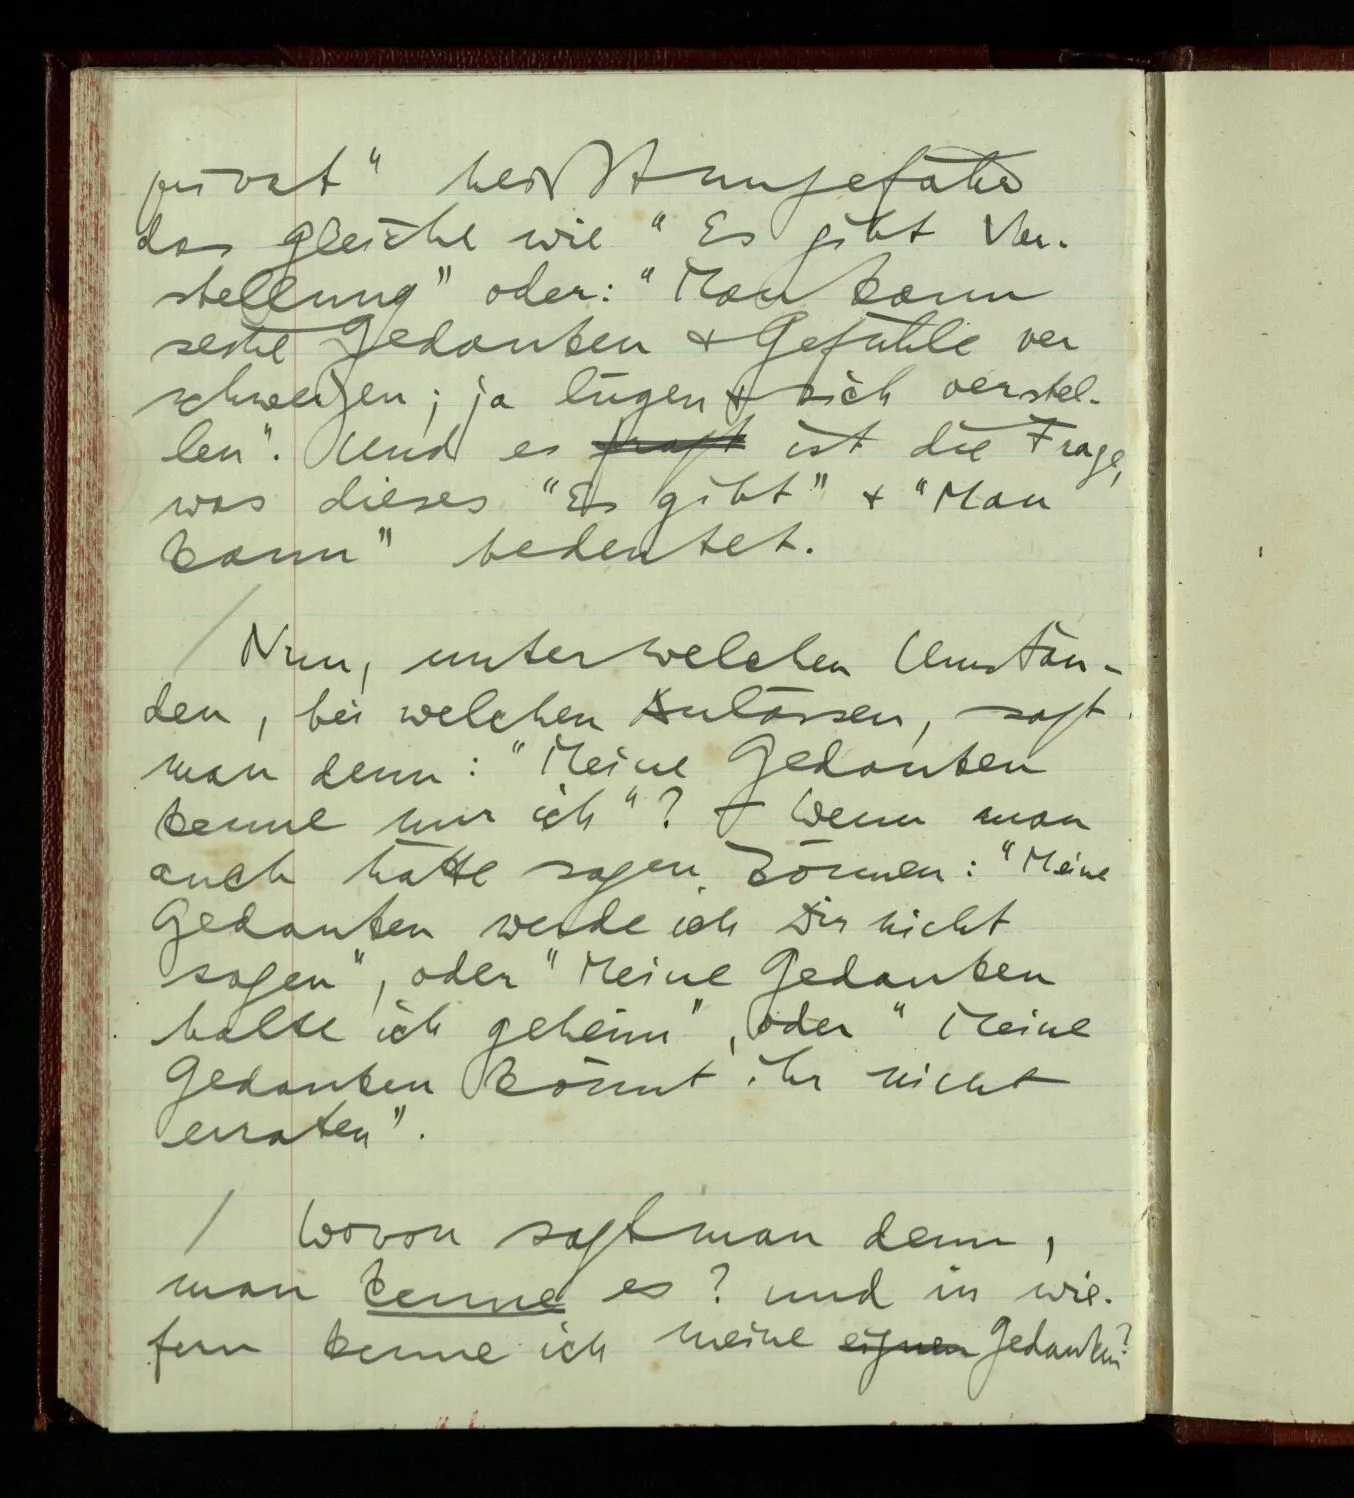 privat" heißt ungefähr
das gleiche wie "Es gibt Ver-
stellung" oder: "Man kann
seine Gedanken & Gefühle ver
schweigen; ja lügen & sich verstel-
len". Und es fragt ist die Frage,
was dieses "Es gibt" & "Man
kann" bedeutet.
/ Nun, unter welchen Umstän-
den, bei welchen Anlässen, sagt
man denn: "Meine Gedanken
kenne nur ich"? – Wenn man
auch hätte sagen können: "Meine
Gedanken werde ich Dir nicht
sagen", oder "Meine Gedanken
halte ich geheim", oder "Meine
Gedanken könnt ihr nicht
erraten".
/ Wovon sagt man denn,
man kenne es? und in wie-
fern kenne ich meine eignen Gedanken?